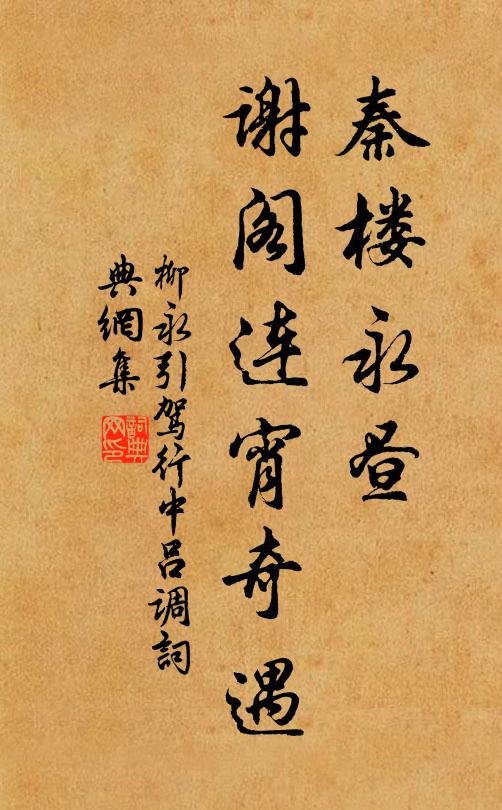 秦楼永昼
谢阁连宵奇遇
柳永引驾行中吕调詞
典網集
詞典网印